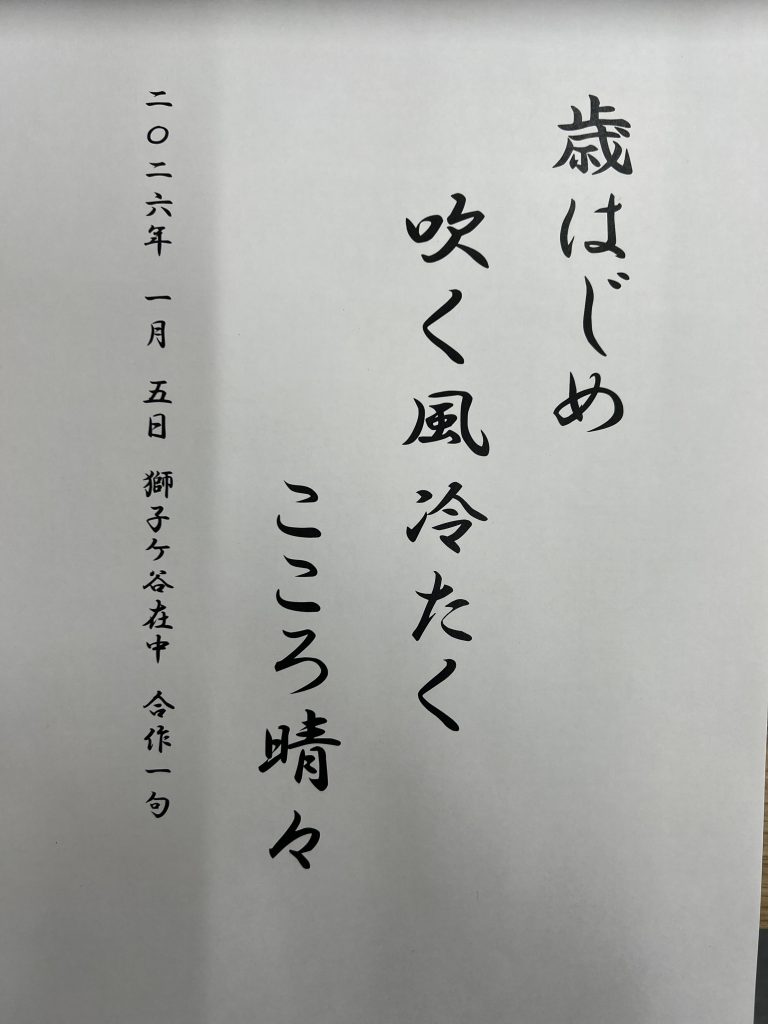 歳はじめ
吹く風冷たく
こころ晴々
二〇二六年 一月 五日 獅子ケ谷在中 合作一句